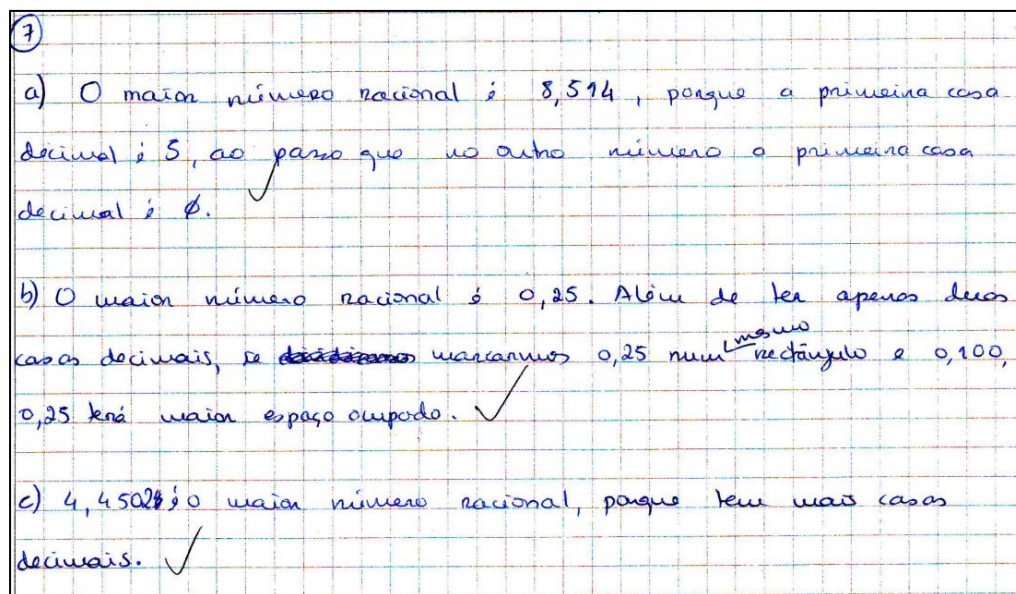 7
a) O maior número racional é 8,514, porque a primeira casa
decimal é 5, ao passo que no outro número a primeira casa
decimal é 0.
b) O maior número racional é 0,25. Além de ter apenas duas
casas decimais, se marcarmos 0,25 num mesmo rectângulo e 0,100,
0,25 terá maior espaço ocupado.
c) é o maior número racional, porque tem mais casas
decimais.